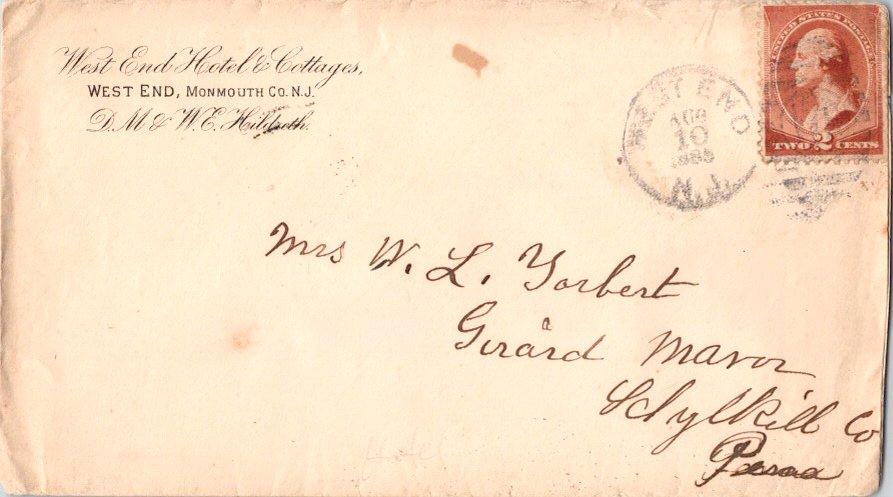 West End Hotel & Cottages,
WEST END, MONMOUTH CO. N.J.
D. M & W. E. Hildreth.
WEST END
AUG
10
1885
N.J.
UNITED STATES POSTAGE
TWO 2 CENTS
Mrs W. L. Yorbert
Girard Manor
Schylkill Co
Penna
Hotel